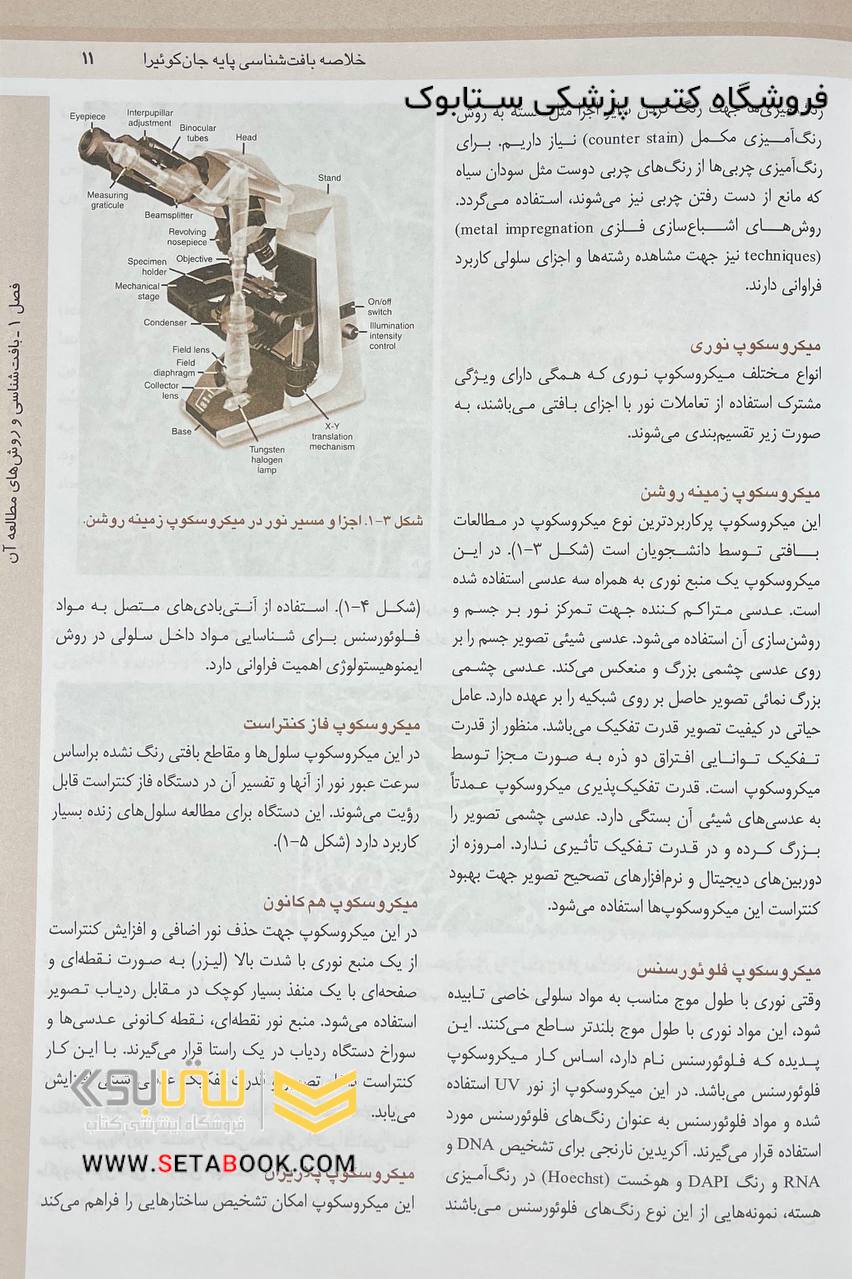 خلاصه بافت‌شناسی پایه جان‌کوئیرا ۱۱
فروشگاه کتب پزشکی ستابوک
رنگ‌آمیزی‌ها جهت رنگ کردن سایر اجزا مثل هسته به روش
رنگ‌آمیزی مکمل (counter stain) نیاز داریم. برای
رنگ‌آمیزی چربی‌ها از رنگ‌های چربی دوست مثل سودان سیاه
که مانع از دست رفتن چربی نیز می‌شوند، استفاده می‌گردد.
روش‌های اشباع‌سازی فلزی (metal impregnation
techniques) نیز جهت مشاهده رشته‌ها و اجزای سلولی کاربرد
فراوانی دارند.
میکروسکوپ نوری
انواع مختلف میکروسکوپ نوری که همگی دارای ویژگی
مشترک استفاده از تعاملات نور با اجزای بافتی می‌باشند، به
صورت زیر تقسیم‌بندی می‌شوند.
میکروسکوپ زمینه روشن
این میکروسکوپ پرکاربردترین نوع میکروسکوپ در مطالعات
بافتی توسط دانشجویان است (شکل ۳-۱). در این
میکروسکوپ یک منبع نوری به همراه سه عدسی استفاده شده
است. عدسی متراکم کننده جهت تمرکز نور بر جسم و
روشن‌سازی آن استفاده می‌شود. عدسی شیئی تصویر جسم را بر
روی عدسی چشمی بزرگ و منعکس می‌کند. عدسی چشمی
بزرگ نمائی تصویر حاصل بر روی شبکیه را بر عهده دارد. عامل
حیاتی در کیفیت تصویر قدرت تفکیک می‌باشد. منظور از قدرت
تفکیک توانایی افتراق دو ذره به صورت مجزا توسط
میکروسکوپ است. قدرت تفکیک‌پذیری میکروسکوپ عمدتاً
به عدسی‌های شیئی آن بستگی دارد. عدسی چشمی تصویر را
بزرگ کرده و در قدرت تفکیک تأثیری ندارد. امروزه از
دوربین‌های دیجیتال و نرم‌افزارهای تصحیح تصویر جهت بهبود
کنتراست این میکروسکوپ‌ها استفاده می‌شود.
میکروسکوپ فلوئورسنس
وقتی نوری با طول موج مناسب به مواد سلولی خاصی تابیده
شود، این مواد نوری با طول موج بلندتر ساطع می‌کنند. این
پدیده که فلوئورسنس نام دارد، اساس کار میکروسکوپ
فلوئورسنس می‌باشد. در این میکروسکوپ از نور UV استفاده
شده و مواد فلوئورسنس به عنوان رنگ‌های فلوئورسنس مورد
استفاده قرار می‌گیرند. آکریدین نارنجی برای تشخیص DNA و
RNA و رنگ DAPI و هوخست (Hoechst) در رنگ‌آمیزی
هسته، نمونه‌هایی از این نوع رنگ‌های فلوئورسنس می‌باشند
Eyepiece
Interpupillar
adjustment
Binocular
tubes
Head
Stand
Measuring
graticule
Beamsplitter
Revolving
nosepiece
Specimen
holder
Objective
Mechanical
stage
Condenser
On/off
switch
Illumination
intensity
control
Field lens
Field
diaphragm
Collector
lens
Base
Tungsten
halogen
lamp
X-Y
translation
mechanism
شکل ۳-۱. اجزا و مسیر نور در میکروسکوپ زمینه روشن.
(شکل ۴-۱). استفاده از آنتی‌بادی‌های متصل به مواد
فلوئورسنس برای شناسایی مواد داخل سلولی در روش
ایمنوهیستولوژی اهمیت فراوانی دارد.
میکروسکوپ فاز کنتراست
در این میکروسکوپ سلول‌ها و مقاطع بافتی رنگ نشده براساس
سرعت عبور نور از آنها و تفسیر آن در دستگاه فاز کنتراست قابل
رؤیت می‌شوند. این دستگاه برای مطالعه سلول‌های زنده بسیار
کاربرد دارد (شکل ۵-۱).
میکروسکوپ هم‌کانون
در این میکروسکوپ جهت حذف نور اضافی و افزایش کنتراست
از یک منبع نوری با شدت بالا (لیزر) به صورت نقطه‌ای و
صفحه‌ای با یک منفذ بسیار کوچک در مقابل ردیاب تصویر
استفاده می‌شود. منبع نور نقطه‌ای، نقطه کانونی عدسی‌ها و
سوراخ دستگاه ردیاب در یک راستا قرار می‌گیرند. با این کار
کنتراست تصویر و قدرت تفکیک عدسی شیئی افزایش
می‌یابد.
میکروسکوپ پلاریزان
این میکروسکوپ امکان تشخیص ساختارهایی را فراهم می‌کند
فصل ۱ - بافت‌شناسی و روش‌های مطالعه آن
ستابوک
فروشگاه اینترنتی کتاب
WWW.SETABOOK.COM